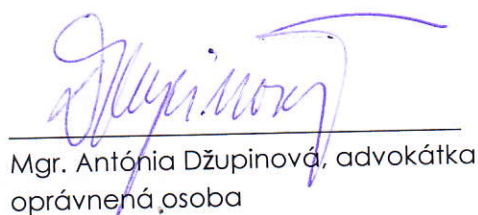 Džupinová
Mgr. Antónia Džupinová, advokátka
oprávnená osoba